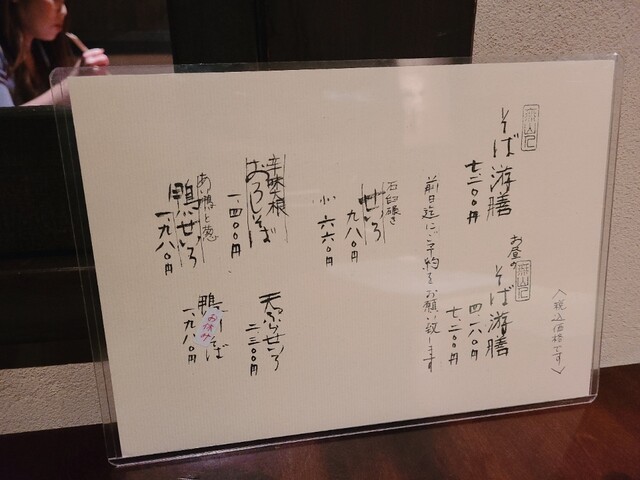 〈税込価格です〉
そば游膳
七、二〇〇円
お昼の
そば游膳
四、六八〇円
七、二〇〇円
前日迄にご予約をお願い致します
石臼碾き
せいろ
九八〇円
小 六六〇円
辛味大根
おろしそば
一、四〇〇円
天ぷらせいろ
二、二三〇〇円
あい鴨と葱
鴨せいろ
一、九八〇円
鴨 そば
お休み
一、九八〇円